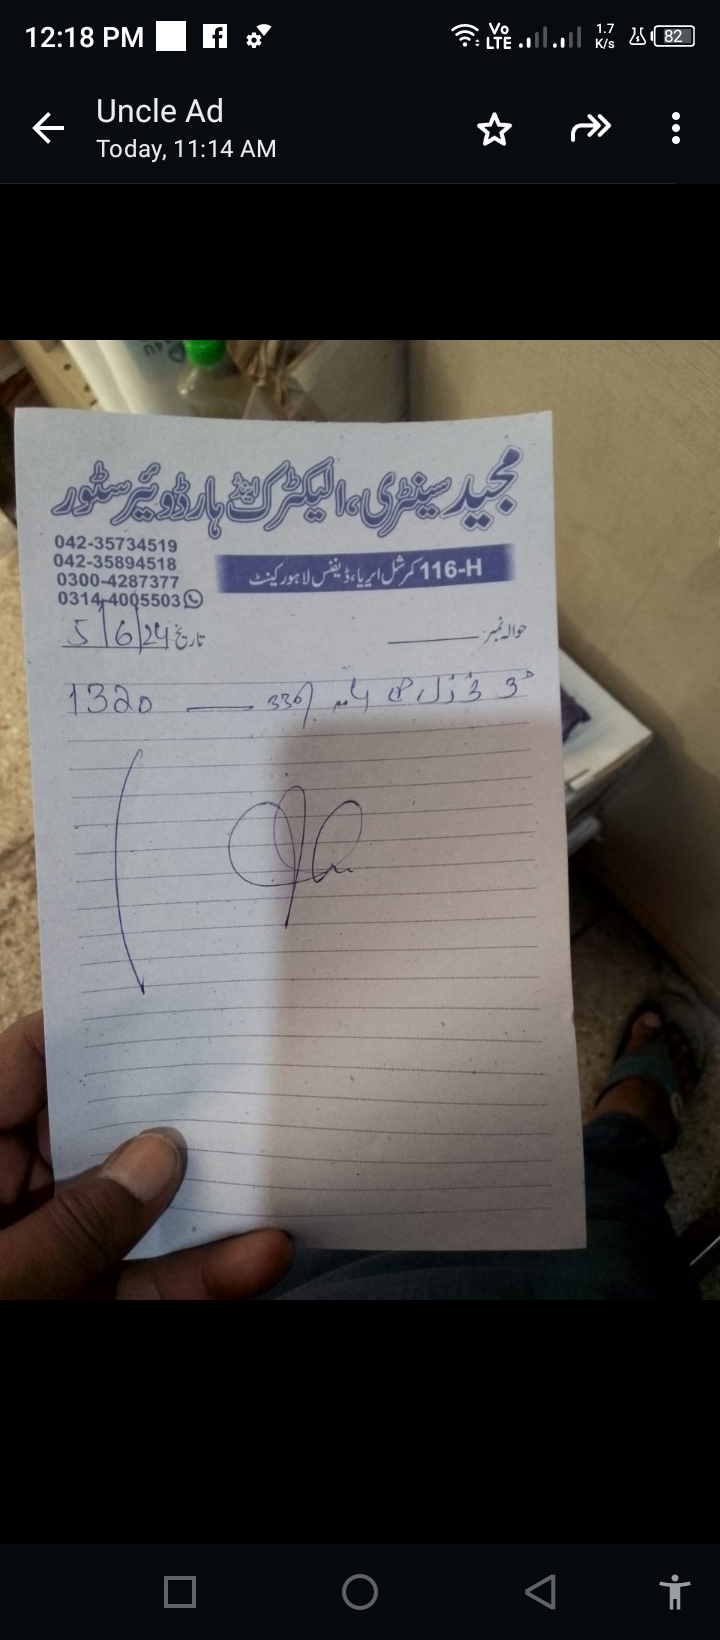 12:18 PM Vo LTE 1.7 K/s 82
Uncle Ad
Today, 11:14 AM
مجید سینٹری، الیکٹرک اینڈ ہارڈویئر سٹور
042-35734519
042-35894518
0300-4287377
0314-4005503
116-H کمرشل ایریا، ڈیفنس لاہور کینٹ
حوالہ نمبر: تاریخ 5/6/24
330/ 1320